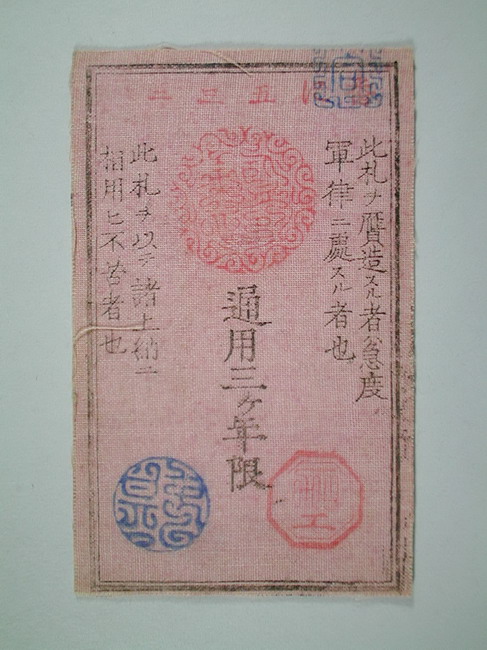 五三二
此札ヲ贋造スル者ハ急度
軍律ニ處スル者也
通用三ケ年限
此札ヲ以テ諸上納ニ
相用ヒ不苦者也